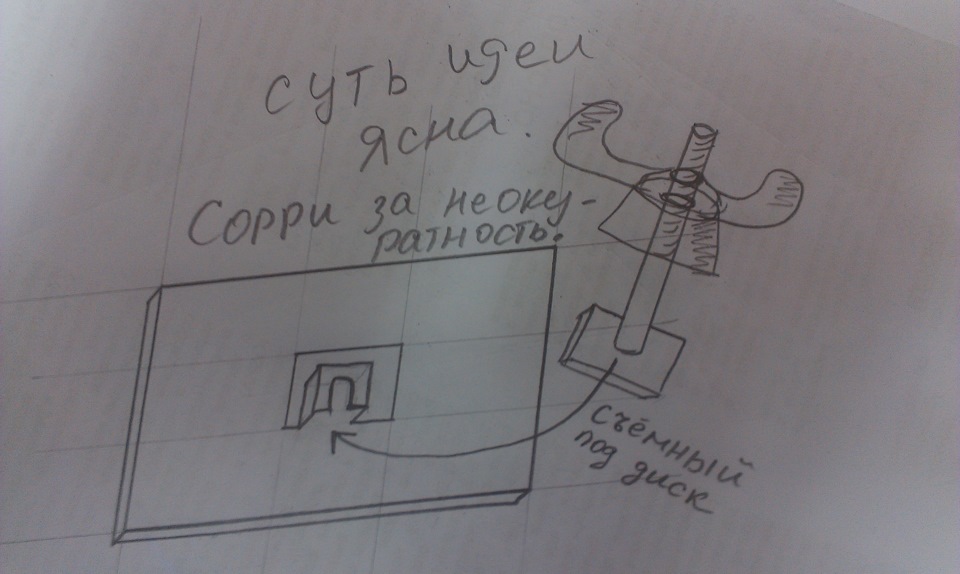 суть идеи
ясна.
Сорри за неоку-
ратность.
съёмный
под диск